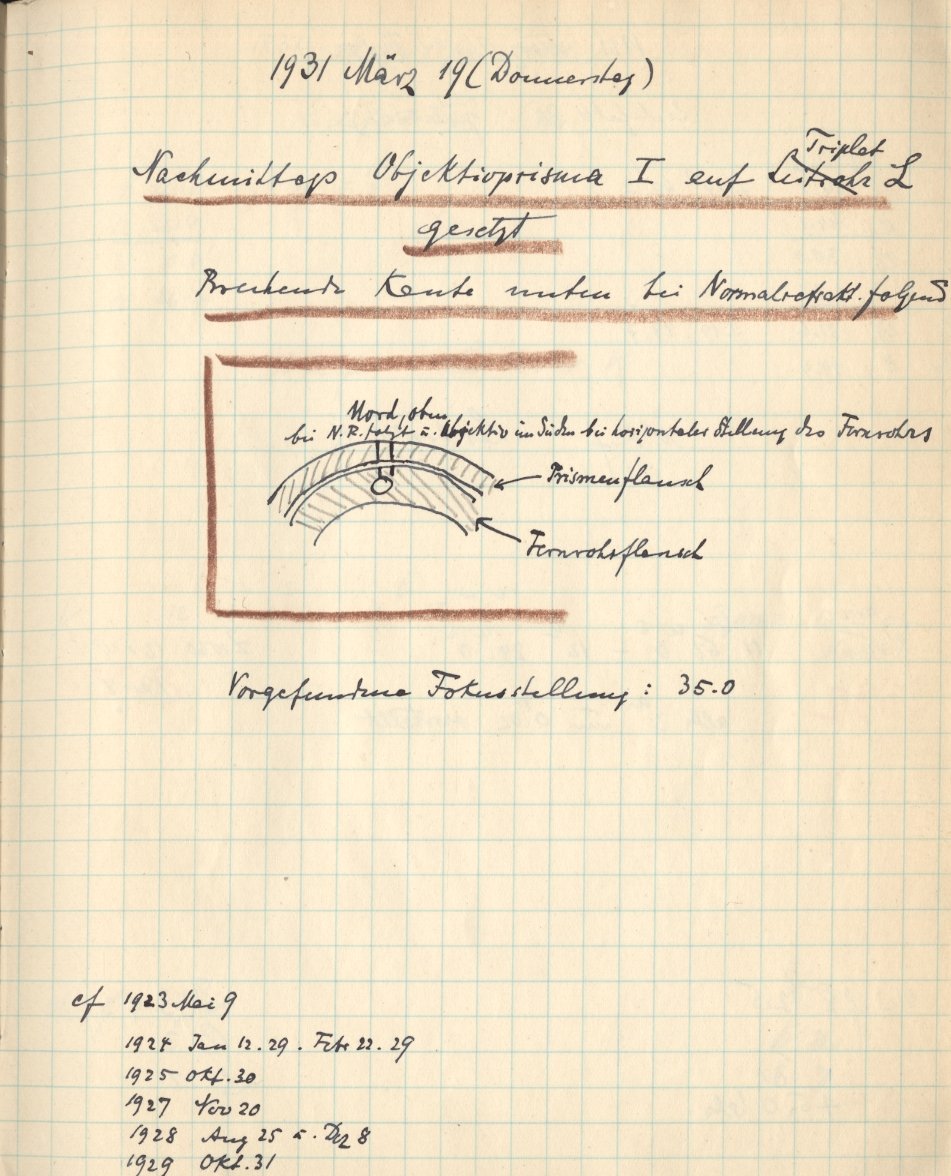 1931 März 19 (Donnerstag)
Triplet
Nachmittags Objektivprisma I auf Leitrohr L
gesetzt
Brechende Kante unten bei Normalrefrakt. folgend
Nord, oben
bei N.R. folgt u. Objektiv im Süden bei horizontaler Stellung des Fernrohrs
Prismenflansch
Fernrohrflansch
Vorgefundene Fokusstellung: 35.0
cf 1923 Mai 9
1924 Jan 12. 29. Febr 22. 29
1925 Okt. 30
1927 Nov 20
1928 Aug 25 u. Dez 8
1929 Okt. 31